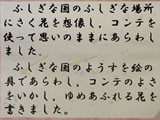 ふしぎな国のふしぎな場所
にさく花を想像し、コンテを
使って思いのままにあらわし
ました。
ふしぎな国のようすを絵の
具であらわし、コンテのよさ
をいかし、ゆめあふれる花を
書きました。